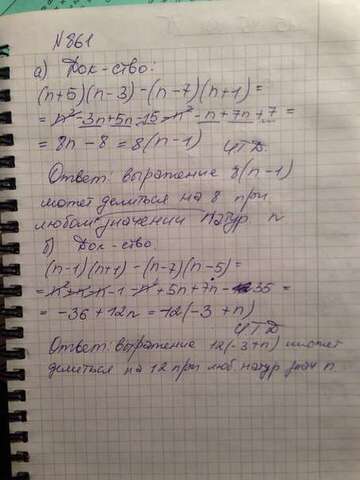 №861
а) Док-ство:
(n+5)(n-3)-(n-7)(n+1)=
= n²-3n+5n-15-n²-n+7n+7=
= 8n-8=8(n-1)
ЧТД
Ответ: выражение 8(n-1)
может делиться на 8 при
любом значении натур n
б) Док-ство:
(n-1)(n+1)-(n-7)(n-5)=
-1-n²+5n+7n-35=
= -36+12n=12(-3+n)
ЧТД
Ответ: выражение 12(-3+n) может
делиться на 12 при люб натур знач n